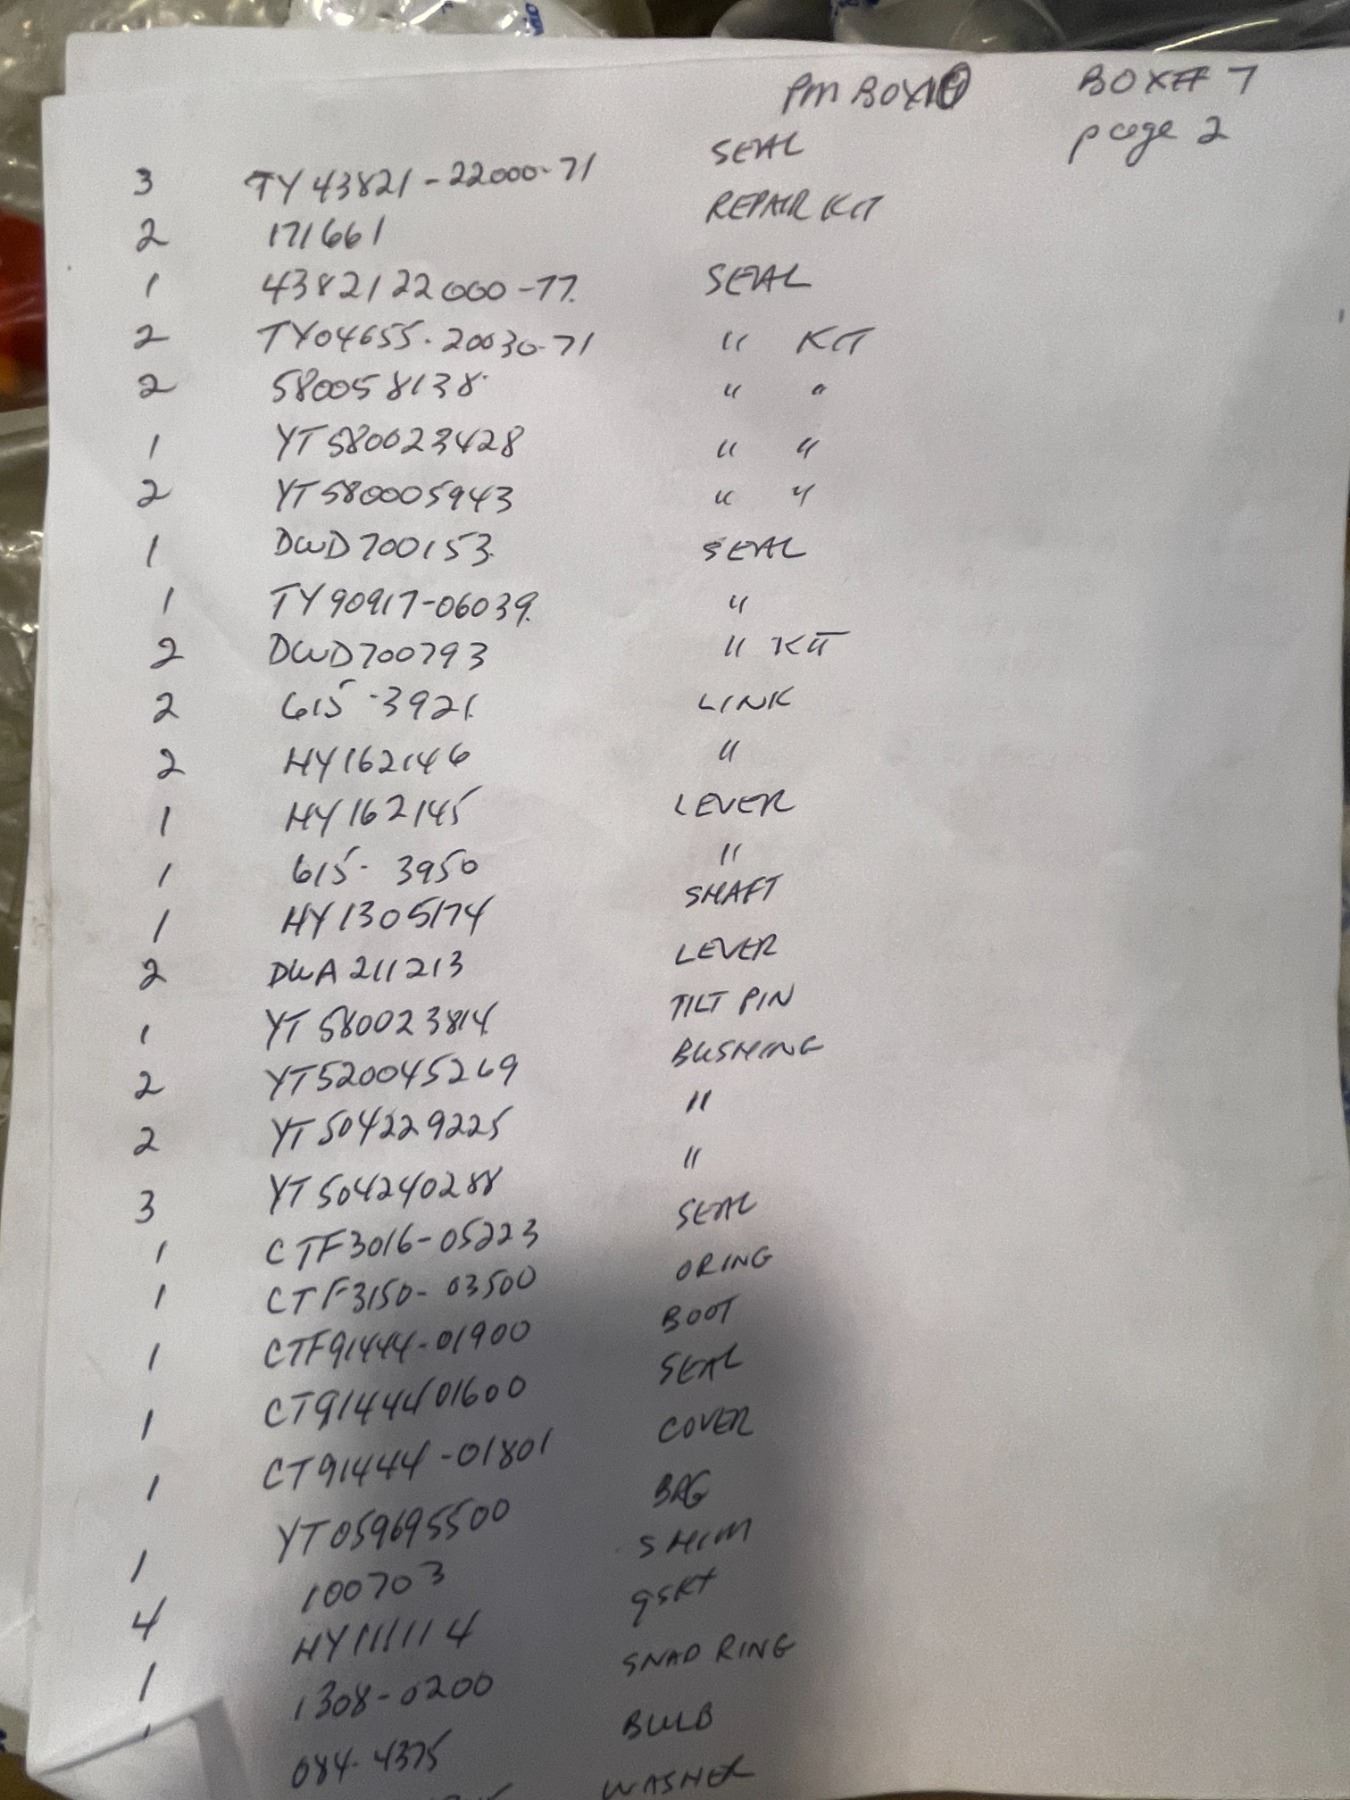 PM BOX BOX# 7
page 2
3 TY43821-22000-71 SEAL
2 171661 REPAIR KIT
1 4382122000-77. SEAL
2 TY04655-20030-71 " KIT
2 580058138 " "
1 YT580023428 " "
2 YT580005943 " "
1 DWD700153 SEAL
1 TY90917-06039 "
2 DWD700793 " KIT
2 615-3921 LINK
2 HY162146 "
1 HY162145 LEVER
1 615-3950 "
1 HY1305174 SHAFT
2 DWA211213 LEVER
1 YT580023814 TILT PIN
2 YT520045269 BUSHING
2 YT504229225 "
3 YT504240288 "
1 CTF3016-05223 SEAL
1 CTF3150-03500 ORING
1 CTF91444-01900 BOOT
1 CT9144401600 SEAL
1 CT91444-01801 COVER
1 YT059695500 BAG
4 100703 SHIM
1 HY111114 gskt
1 1308-0200 SNAP RING
084-4375 BULB
WASHER